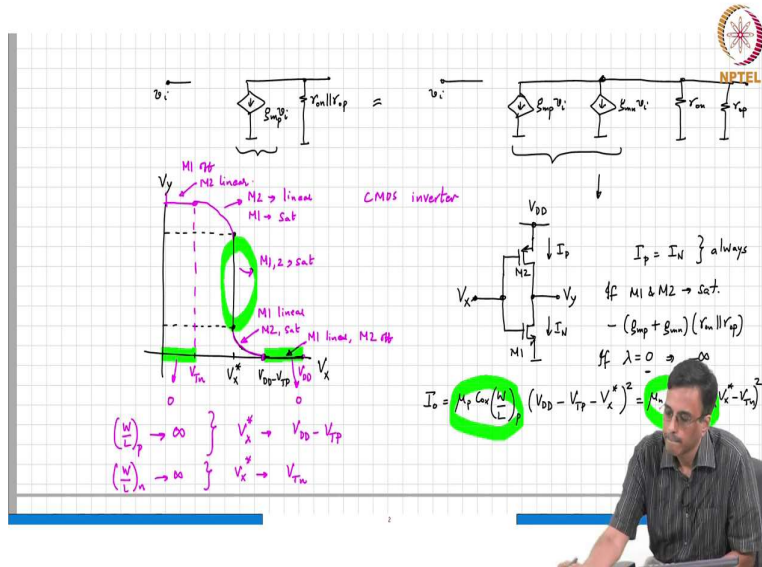 NPTEL
vi
gmp vi
ron||rop
=
vi
gmp vi
gmn vi
ron
rop
M1 off
M2 linear
Vy
M2 → linear
M1 → sat
CMOS inverter
M1,2 → sat
M1 linear
M2, sat
M1 linear, M2 off
VTn
Vx*
VDD-VTP
VDD
Vx
0
0
VDD
Ip
M2
Vx
Vy
IN
M1
Ip = IN } always
If M1 & M2 → sat.
- (gmp + gmn) (ron||rop)
If λ = 0 ⇒ ∞
I0 = μp Cox (W/L)p (VDD - VTP - Vx*)² = μn Vx* - VTn)²
(W/L)p → ∞ } Vx* → VDD - VTP
(W/L)n → ∞ } Vx* → VTn
2